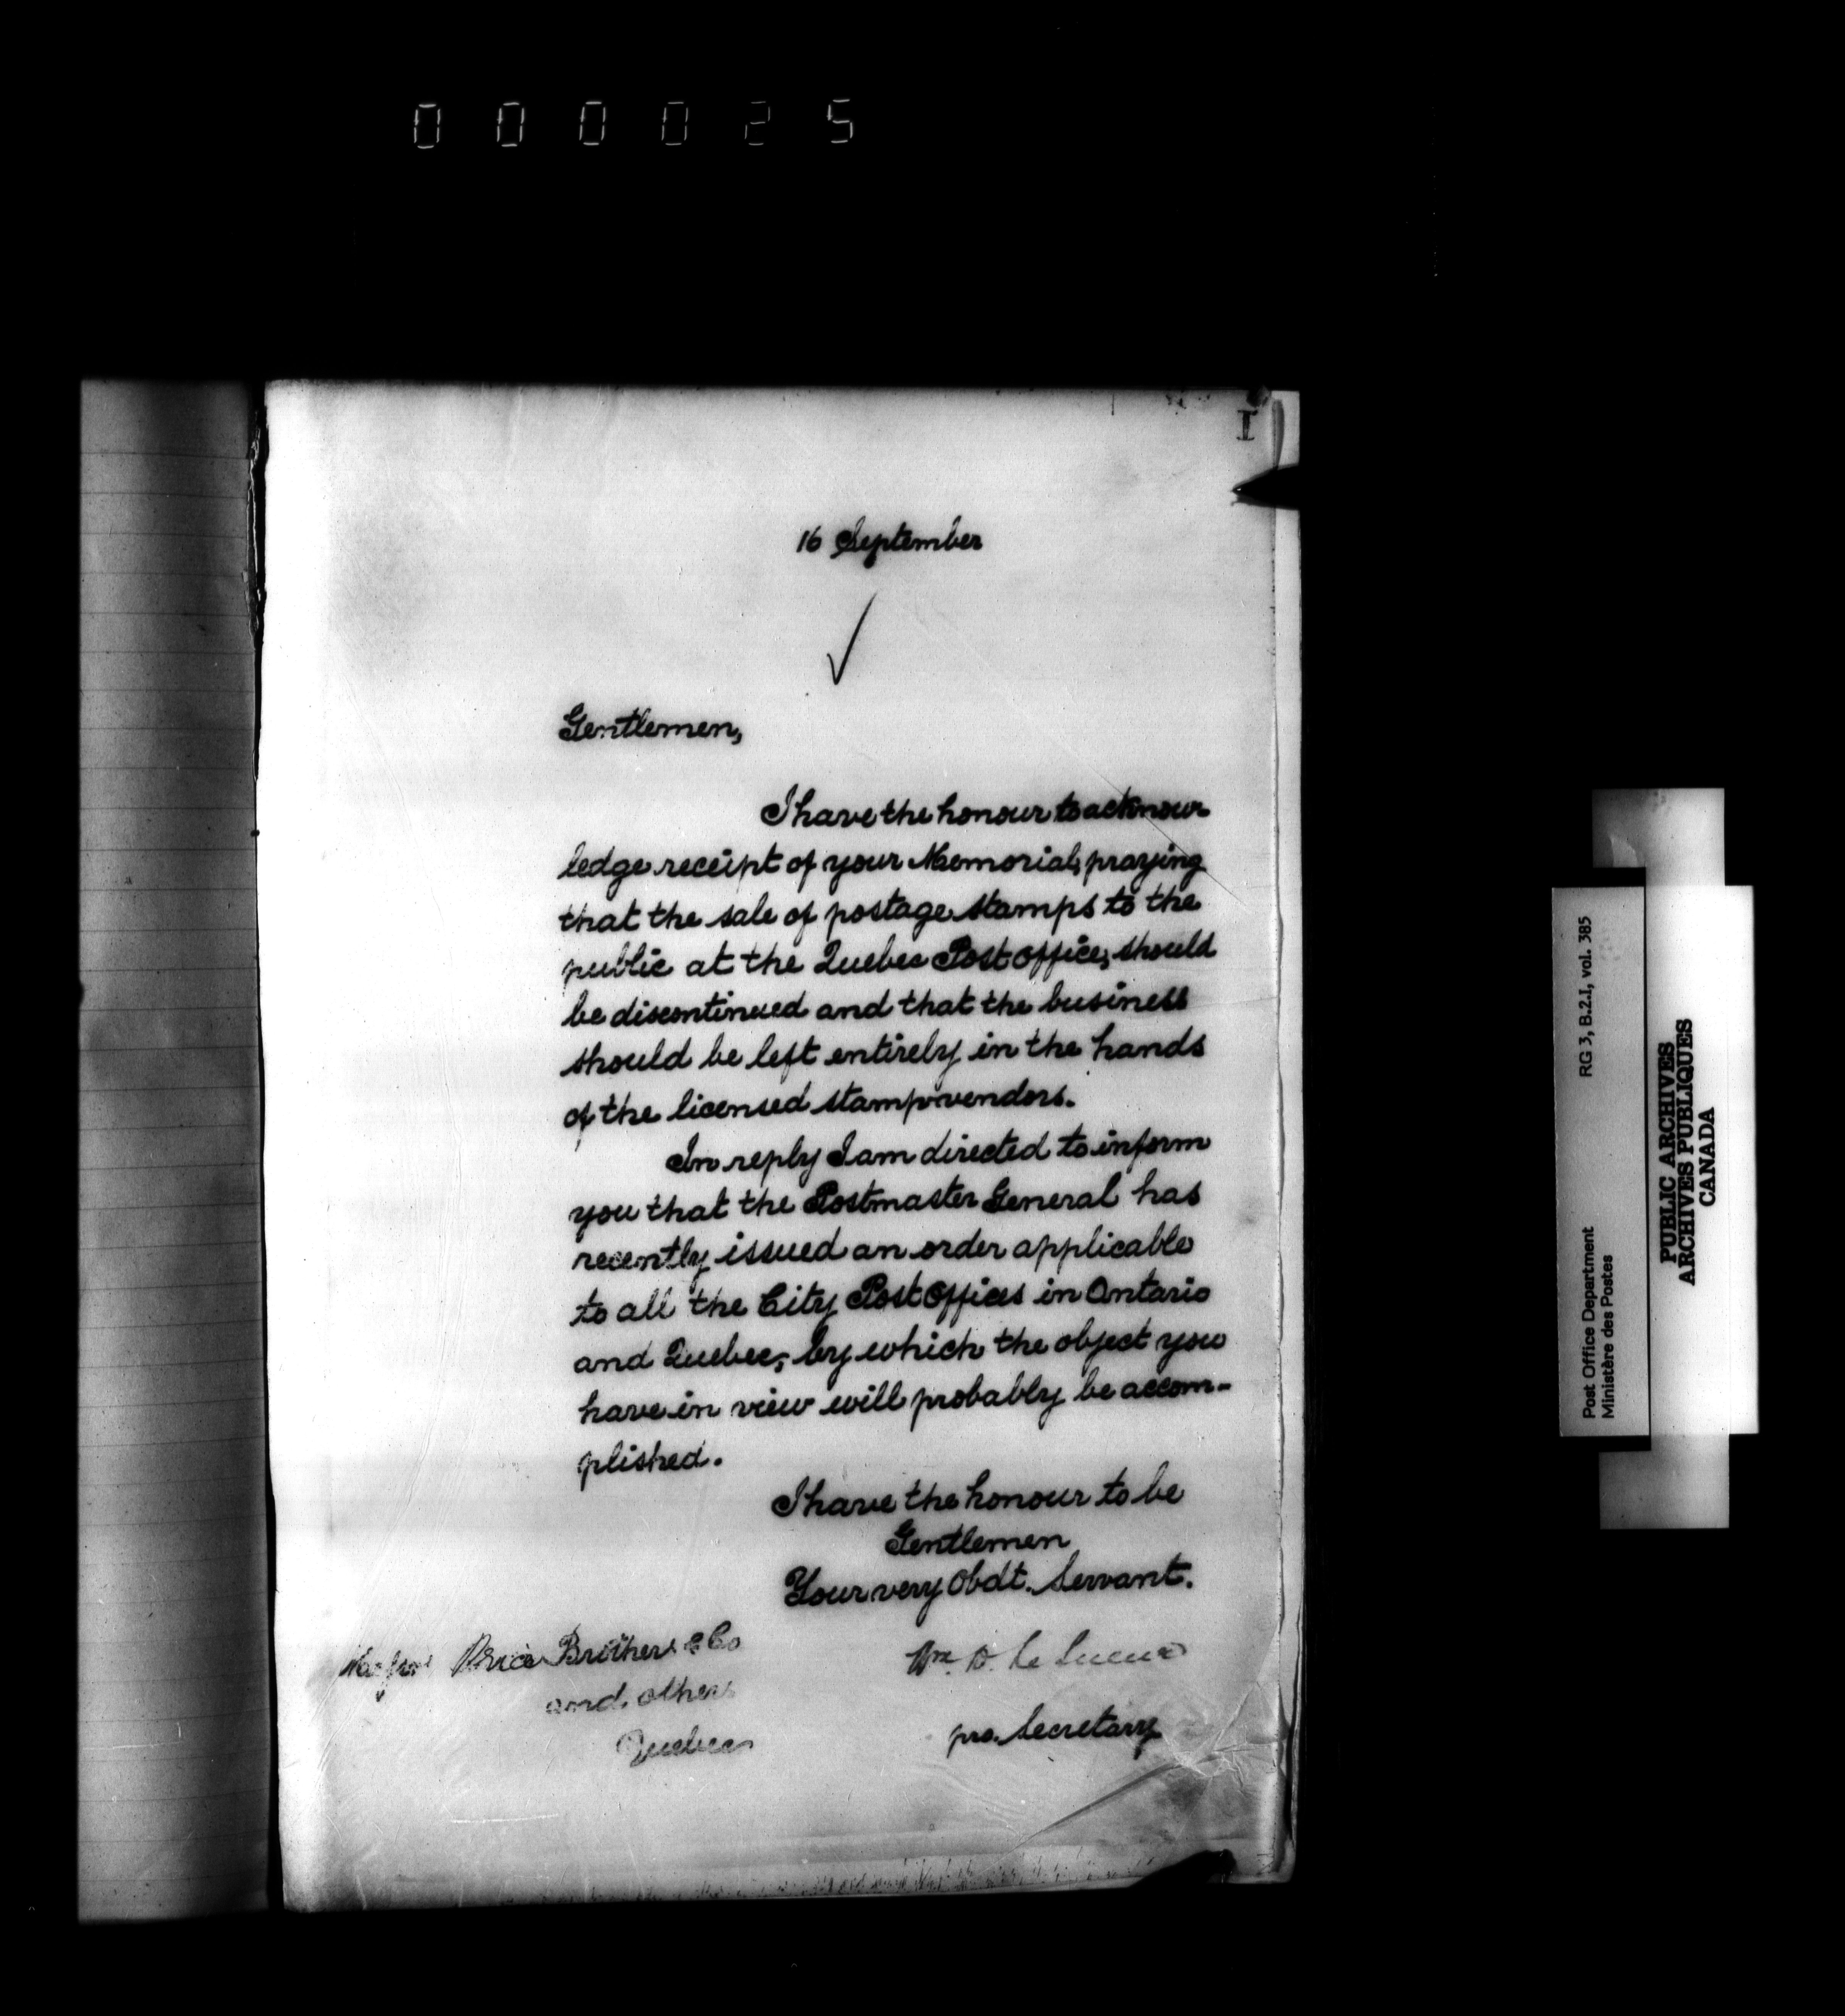 000025
I
16 September
Gentlemen,
I have the honour to acknow
ledge receipt of your Memorial, praying
that the sale of postage stamps to the
public at the Quebec Post office, should
be discontinued and that the business
should be left entirely in the hands
of the licensed stamp vendors.
In reply I am directed to inform
you that the Postmaster General has
recently issued an order applicable
to all the City Post Offices in Ontario
and Quebec, by which the object you
have in view will probably be accom-
plished.
I have the honour to be
Gentlemen
Your very Obdt. Servant.
Wm. D. Le Sueur
pro. Secretary
Messrs Price Brothers & Co
and others
Quebec
Post Office Department RG 3, B.2.I, vol. 385
Ministère des Postes
PUBLIC ARCHIVES
ARCHIVES PUBLIQUES
CANADA